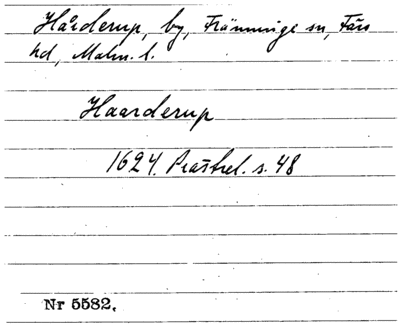 Hårderup, by, Främminge sn, Färs
hd, Malm. l.
Haarderup
1624. Prästrel. s. 48
Nr 5582.